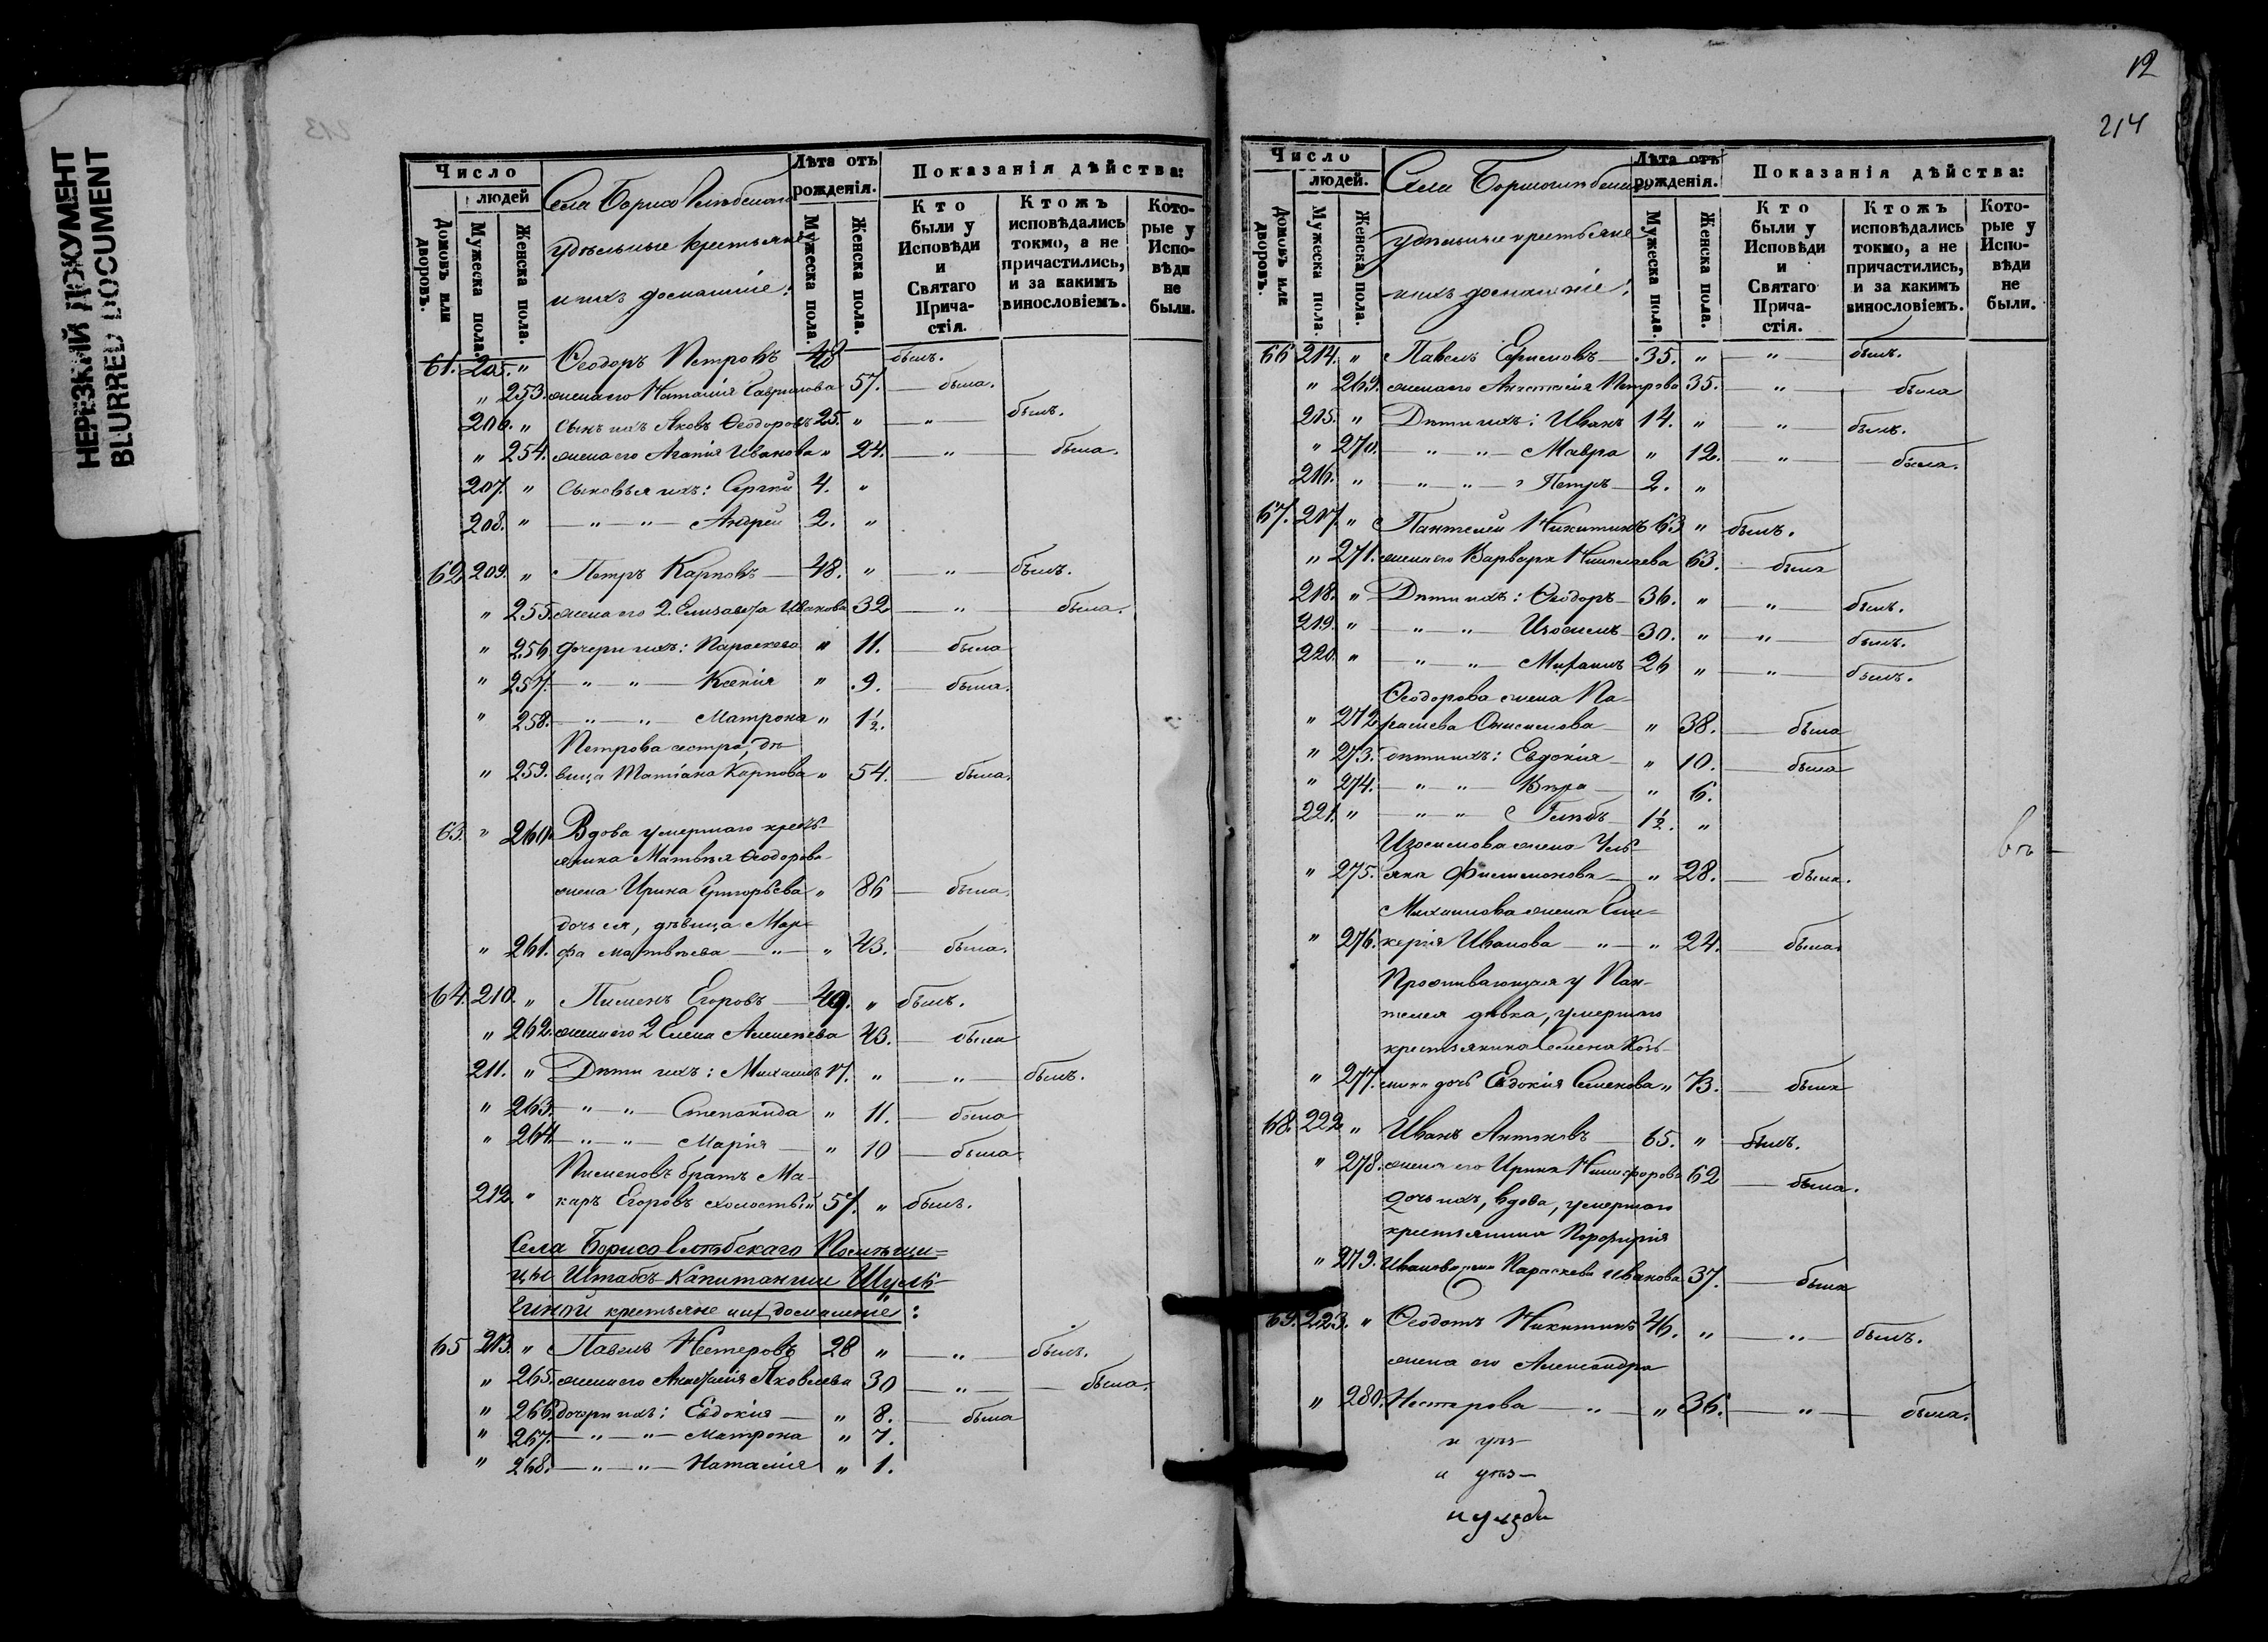 НЕРЕЗКИЙ ДОКУМЕНТ
BLURRED DOCUMENT
Число
людей
Домовъ или дворовъ.
Мужеска пола.
Женска пола.
Села Борисоглѣбскаго
удѣльные крестьяне
и ихъ домашніе:
Лѣта отъ рожденія.
Мужеска пола.
Женска пола.
Показанія дѣйства:
Кто были у Исповѣди и Святаго Прича-стія.
Ктожъ исповѣдались токмо, а не причастились, и за какимъ винословіемъ.
Кото-рые у Испо-вѣди не были.
61. 205. " Ѳеодоръ Петровъ 48 былъ.
" 253. жена его Наталія Гаврилова 57. — была.
206. " Сынъ ихъ Яковъ Ѳеодоровъ 25. " — " — былъ.
" 254. жена его Агапія Иванова " 24. — " — была.
207. " Сыновья ихъ: Сергѣй 4. "
208. " — " — " — Андрей 2. "
62. 209. " Петръ Карповъ — 48. " — " — былъ.
" 255. жена его 2. Елизавета Иванова 32 — " — была.
" 256. дочери ихъ: Параскева " 11. — была
" 257. — " — " — Ксенія " 9. — была.
" 258. — " — " — Матрона " 1½.
Петрова сестра, дѣ-
" 259. вица Татіана Карпова " 54. — была.
63. " 260. Вдова умершаго кресть-
янина Матвѣя Ѳеодорова
жена Ирина Григорьева " 86 — была.
дочь ея, дѣвица Мар-
" 261. фа Матвѣева — " — " 43. — была.
64. 210. " Пименъ Егоровъ — 49. " былъ.
" 262. жена его 2 Елена 43. — была
211. " Дѣти ихъ: Михаилъ 17. " — " — былъ.
" 263. — " — " — Степанида " 11. — была
" 264. — " — " — Марія — " 10 — была
Пименовъ братъ Ма-
212. " каръ Егоровъ холостый 57. " былъ.
Села Борисоглѣбскаго Помѣщи-
цы Штабсъ Капитанши Шуль-
гиной крестьяне и их домашніе:
65 213. " Павелъ Нестеровъ 28 " — " — былъ.
" 265. жена его Яковлева 30 — " — была.
" 266. дочери ихъ: Евдокія — " 8. — была
" 267. — " — " — Матрона " 7.
" 268. — " — " — Наталія " 1.
12
214
Число
людей.
Домовъ или дворовъ.
Мужеска пола.
Женска пола.
Села Борисоглѣбскаго
удѣльные крестьяне
и ихъ домашніе:
Лѣта отъ рожденія.
Мужеска пола.
Женска пола.
Показанія дѣйства:
Кто были у Исповѣди и Святаго Прича-стія.
Ктожъ исповѣдались токмо, а не причастились, и за какимъ винословіемъ.
Кото-рые у Испо-вѣди не были.
66 214. " Павелъ Ефимовъ — 35. " — " — былъ.
" 269. жена его Анастасія Петрова 35. — " — была
215. " Дѣти ихъ: Иванъ 14. " — " — былъ.
" 270. — " — " — Мавра " 12. — " — была.
216. " — " — " — Петръ — 2. "
67. 217. " Пантелей Никитинъ 63 " былъ.
" 271. жена его Варвара Николаева 63. — была
218. " Дѣти ихъ: Ѳеодоръ — 36. " — " — былъ.
219. " — " — " — Изосимъ — 30. " — " — былъ.
220. " — " — " — Михаилъ 26 " — " — былъ.
Ѳеодорова жена Па-
" 272. раскева Онисимова — " 38. — была
" 273. дѣти ихъ: Евдокія — " 10. — была
" 274. — " — " — Вѣра — " 6.
221. " — " — " — Глѣбъ — 1½. "
Изосимова жена Уль-
" 275. яна Филимонова — " 28. — была.
Михаилова жена Гли-
" 276. керія Иванова — " — " 24. — была.
Проживающая у Пан-
телея дѣвка, умершаго
крестьянина Семена Козь-
" 277. мина дочь Евдокія Семенова " 73. — была
68. 222. " Иванъ Антоновъ — 65. " — былъ.
" 278. жена его Ирина Никифорова 62 — была.
дочь ихъ, вдова, умершаго
крестьянина Порфирія
" 279. Иванова жена Параскева Иванова 37. — была
69. 223. " Ѳеодотъ Никитинъ 46. " — " — былъ.
жена его Александра
" 280. Нестерова — " — " 36. — " — была.
въ —
и уѣз—
и уѣз—